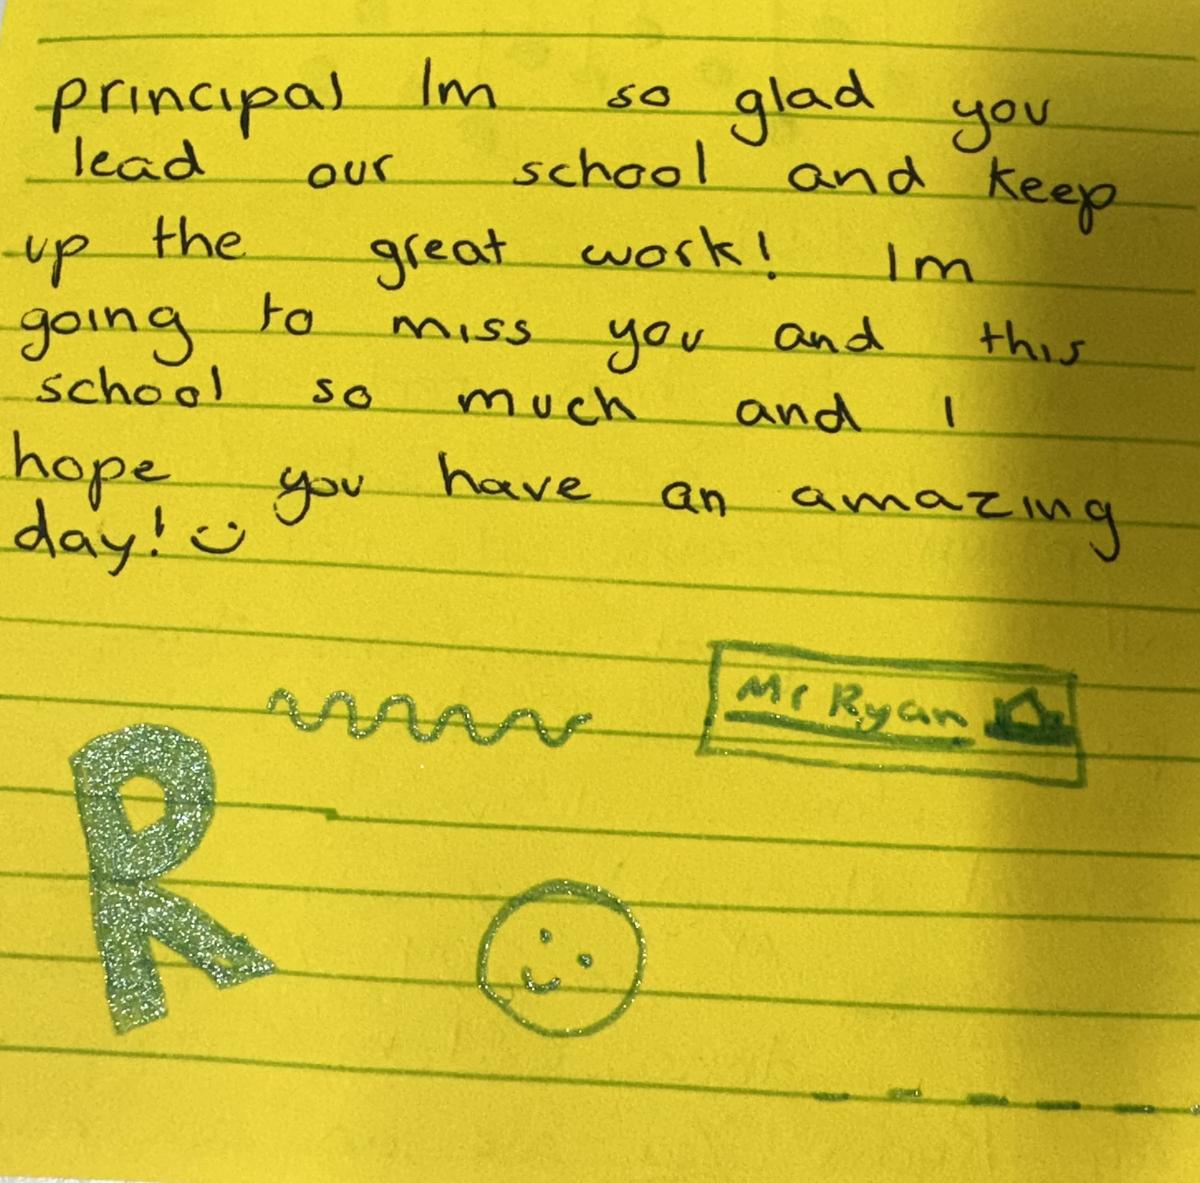 principal Im so glad you
lead our school and keep
up the great work! Im
going to miss you and this
school so much and I
hope you have an amazing
day! :)
Mr Ryan
R